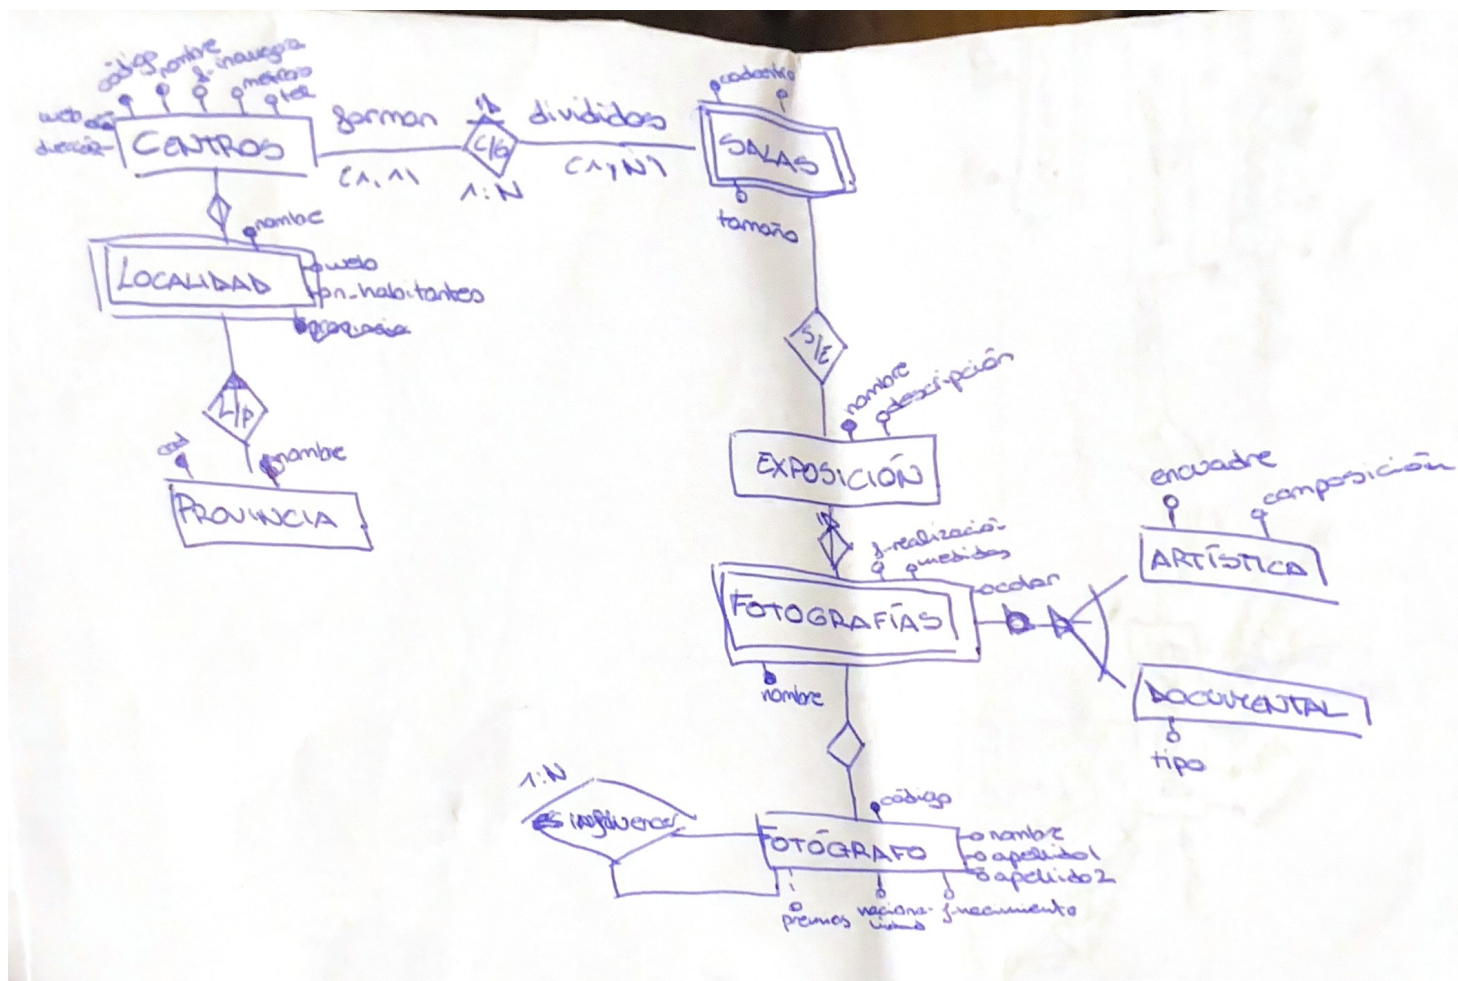 código
nombre
f-inaugura
metros
tel
web
dirección
CENTROS
forman
(1,1)
ID
C/S
1:N
divididos
(1,N)
catastro
SALAS
tamaño
nombre
LOCALIDAD
web
n_habitantes
L/P
cod
nombre
PROVINCIA
S/E
nombre
descripción
EXPOSICIÓN
ID
f-realización
medidas
color
FOTOGRAFÍAS
nombre
encuadre
composición
ARTÍSTICA
DOCUMENTAL
tipo
1:N
código
FOTÓGRAFO
nombre
apellido1
apellido2
premios
f-nacimiento